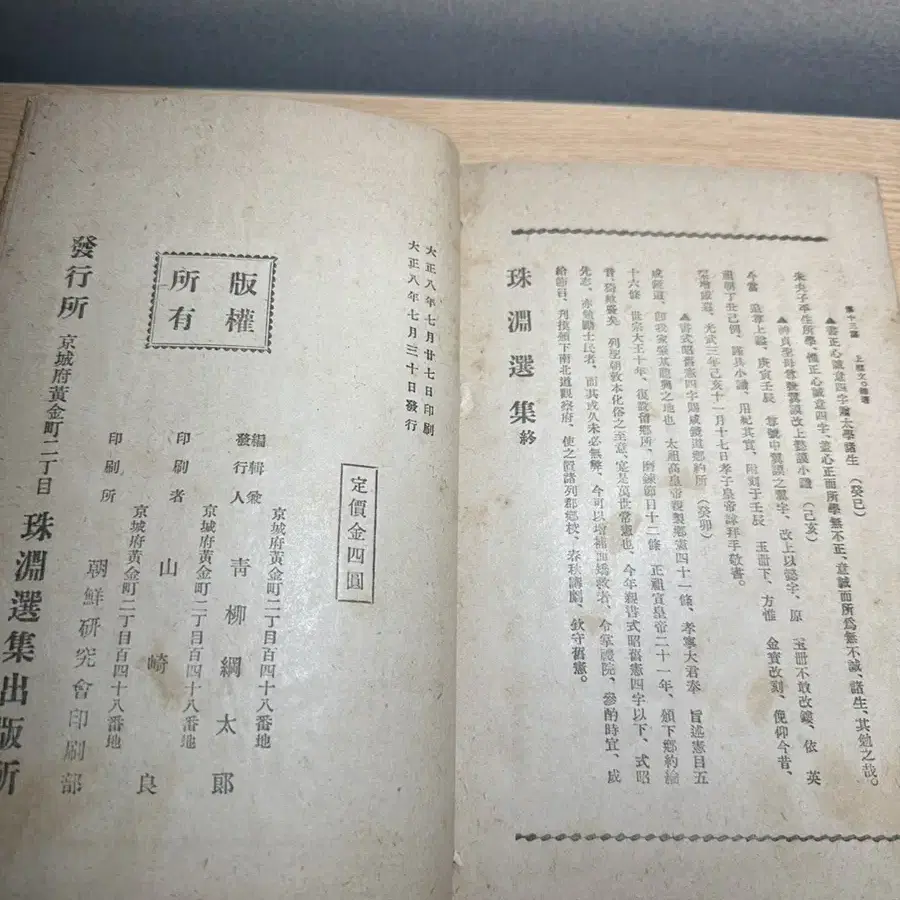 第十三編
上梁文◦雜著
▲書正心誠意四字贈太學諸生 (癸巳)
朱夫子平生所學、惟正心誠意四字、蓋心正而所學無不正、意誠而所爲無不誠、諸生、其勉之哉。
▲神貞聖母尊號冀謨改上懿謨小識 (己亥)
今當 追尊上諡、庚寅壬辰 尊號中冀謨之冀字、改上以懿字、原 玉冊不敢改鐫、依 英
祖朝丁丑已例、謹具小識、用紀其實、附刻于壬辰 玉冊下、方惟 金寶改刻、俛仰今昔、
榮增
光武三年己亥十一月十七日孝子皇帝謹拜手敬書。
▲書式昭舊憲四字賜咸鏡道鄉約所 (癸卯)
咸鏡道、卽我家發基龍興之地也 太祖高皇帝親製鄕憲四十一條、孝寧大君奉 旨述憲目五
十六條 世宗大王十年、復設留鄉所、磨鍊節目十二條 正祖宣皇帝二十一年、頒下鄉約綸
音、猗歟盛矣 列聖朝敦本化俗之至意、寔是萬世常憲也、今年親書式昭舊憲四字以下、式昭
先志、亦勉勵士民者、而其或久未必無弊、今可以增補而矯救者、令掌禮院、參酌時宜、成
給節目、刊揭頒下南北道觀察府、使之眞諸列郡鄉校、春秋講劘、欽守舊憲。
珠淵選集終
大正八年七月廿七日印刷
大正八年七月三十日發行
版權所有
定價金四圓
京城府黃金町二丁目百四十八番地
編輯兼發行人 靑柳綱太郎
京城府黃金町二丁目百四十八番地
印刷者 山崎良
京城府黃金町二丁目百四十八番地
印刷所 朝鮮研究會印刷部
發行所 京城府黃金町二丁目 珠淵選集出版所